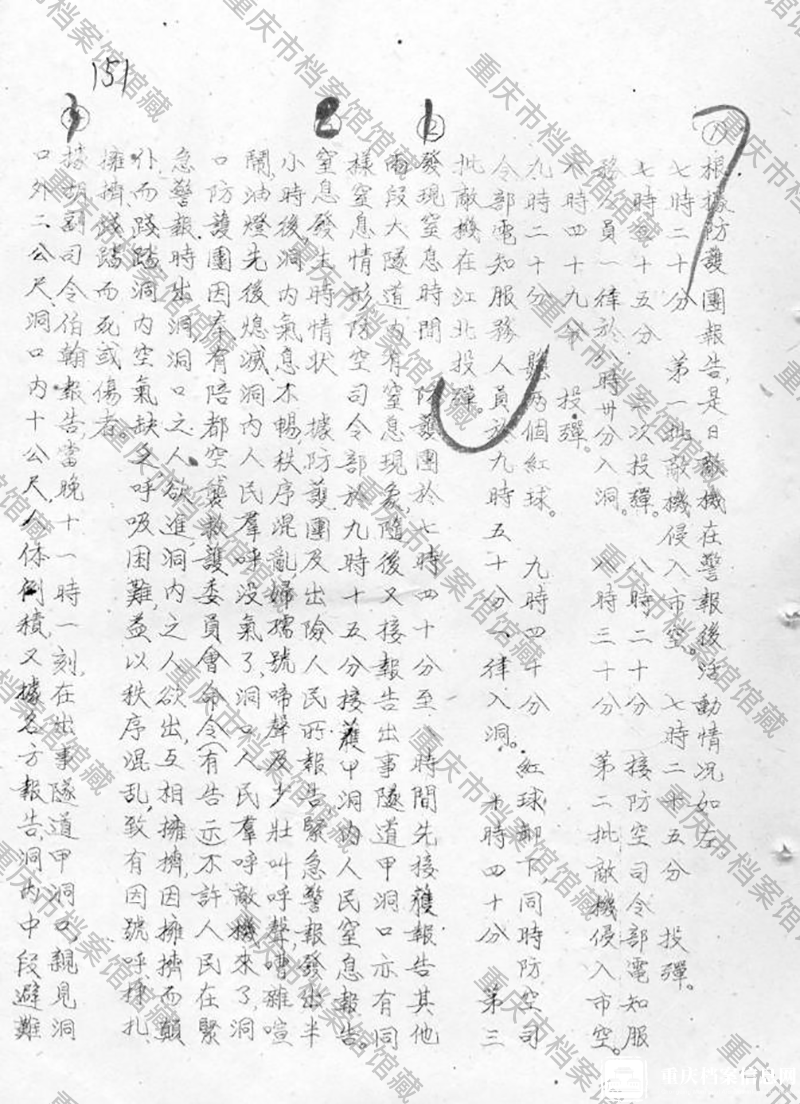 151
根據防護團報告，是日敵機在警報後活動情況如左
七時二十分　第一批敵機侵入市空。　七時二十五分　投彈。
七時五十五分　二次投彈。　八時二十分　接防空司令部電知服
務人員一律於八時卅分入洞。　八時三十分　第二批敵機侵入市空。
八時四十九分　投彈。
九時二十分　懸兩個紅球。　九時四十分　紅球卸下，同時防空司
令部電知服務人員於九時五十分一律入洞。　九時四十分　第三
批敵機在江北投彈。
② 發現窒息時間　防護團於七時四十分至　時間先接獲報告其他
兩段大隧道內有窒息現象，隨後又接報告出事隧道甲洞口亦有同
樣窒息情形防空司令部於九時十五分接獲甲洞內人民窒息報告。
2 窒息發生時情狀　據防護團及出險人民所報告緊急警報發出半
小時後，洞內氣息不暢秩序混亂，婦孺號啼聲及少壯叫呼聲，嘈雜喧
鬧，油燈先後熄滅，洞內人民羣呼没氣了，洞口人民羣呼敵機來了，洞
口防護團因奉有陪都空襲救護委員會命令(有告示)不許人民在緊
急警報時出洞，洞口之人欲進，洞內之人欲出，互相擁擠，因擁擠而顛
仆而踐踏，洞內空氣缺乏，呼吸困難，益以秩序混乱，致有因號呼掙扎
擁擠踐踏而死或傷者。
3 據胡副司令伯翰報告當晚十一時一刻，在出事隧道甲洞口，親見洞
口外二公尺，洞口內十公尺，人体倒積，又據各方報告，洞內中段避難
重庆市档案馆馆藏
重庆档案信息网